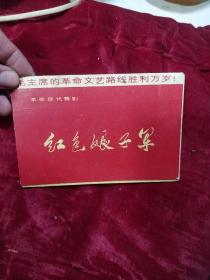 毛主席的革命文艺路线胜利万岁！
革命现代舞剧
红色娘子军